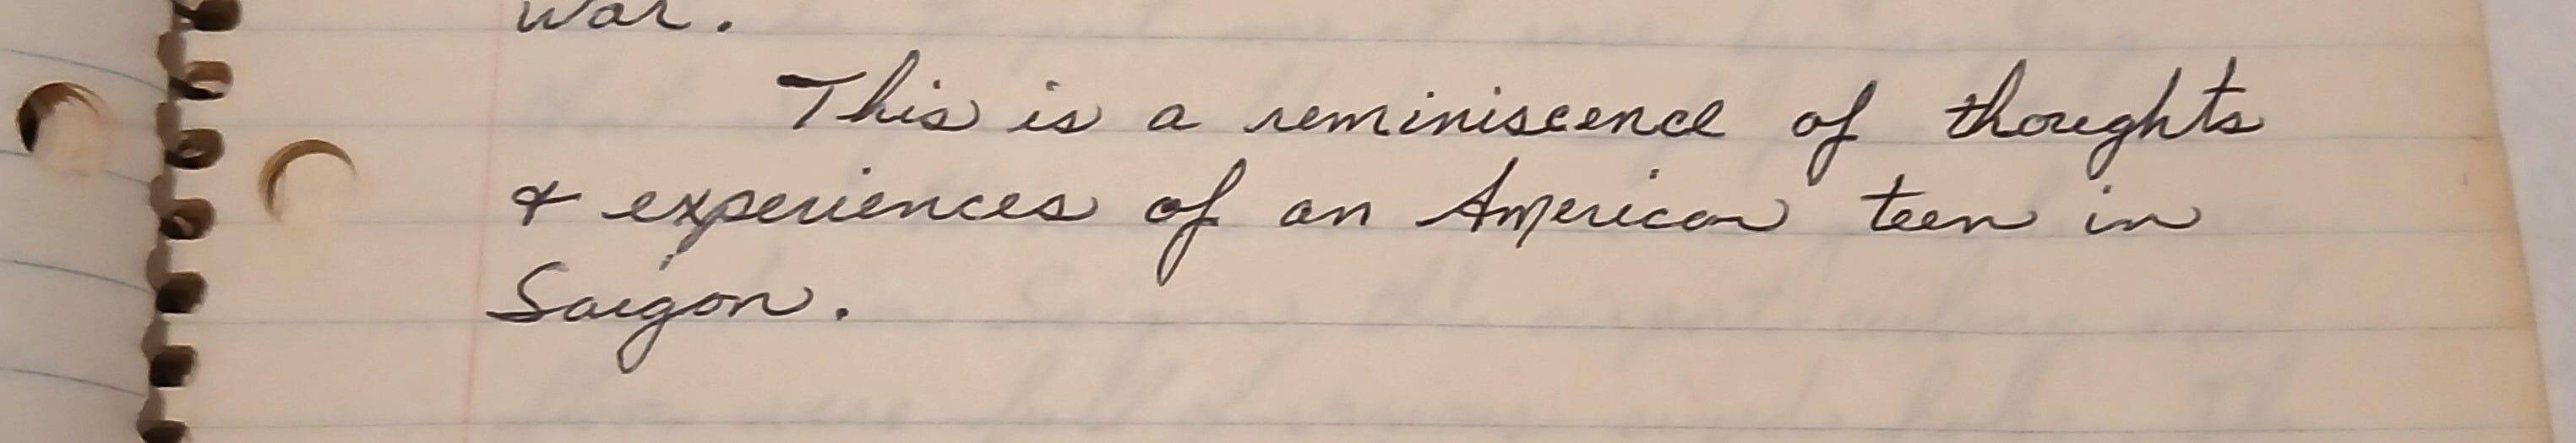 war.
This is a reminiscence of thoughts
& experiences of an American teen in
Saigon.